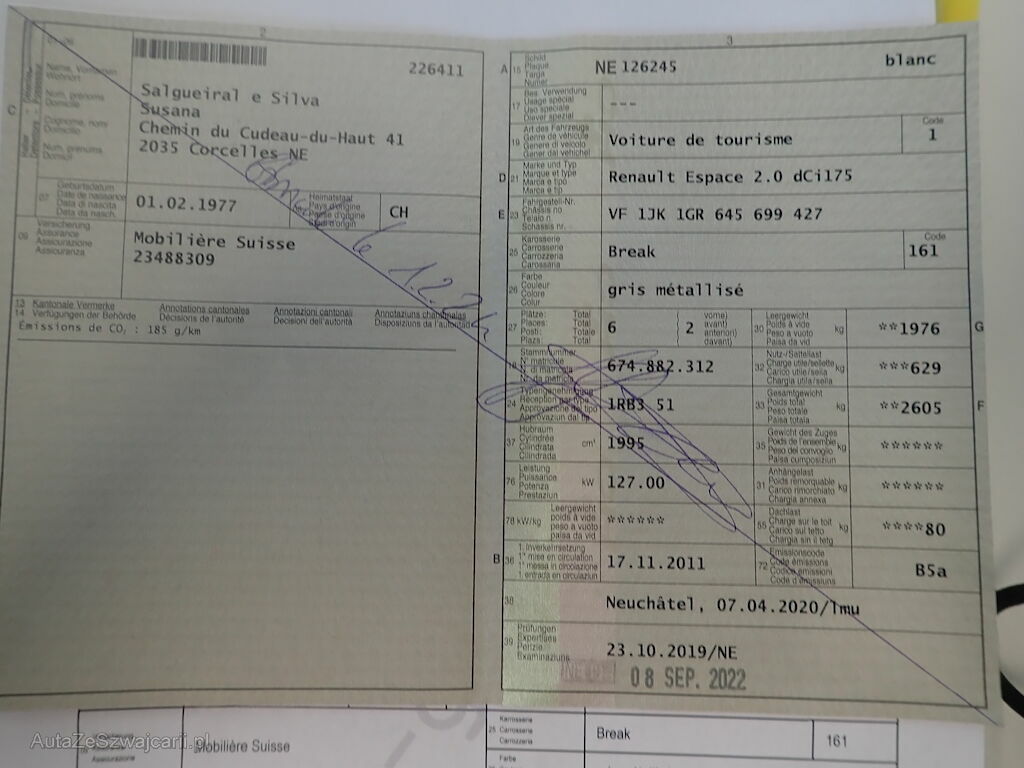 2
226411
C
01-06
Name, Vornamen
Wohnort
Nom, prénoms
Domicile
Cognome, nomi
Domicilio
Num, prenums
Domicil
Salgueiral e Silva
Susana
Chemin du Cudeau-du-Haut 41
2035 Corcelles NE
07
Geburtsdatum
Date de naissance
Data di nascita
Data da nasch.
01.02.1977
Heimatstaat
Pays d'origine
CH
09
Versicherung
Assurance
Assicurazione
Assicuranza
Mobilière Suisse
23488309
13 Kantonale Vermerke
14 Verfügungen der Behörde
Annotations cantonales
Décisions de l'autorité
Annotazioni cantonali
Decisioni dell'autorità
Annotaziuns chantunalas
Disposiziuns da l'autoritad
Émissions de CO₂ : 185 g/km
3
A 15
Schild
Plaque
Targa
Numer
NE 126245
blanc
17
Bes. Verwendung
Usage spécial
Uso speciale
Diever spezial
---
19
Art des Fahrzeugs
Genre de véhicule
Genere di veicolo
Gener dal vehichel
Voiture de tourisme
Code
1
D 21
Marke und Typ
Marque et type
Marca e tipo
Marca e tip
Renault Espace 2.0 dCi175
E 23
Fahrgestell-Nr.
Châssis no
Telaio n.
Schassis nr.
VF 1JK 1GR 645 699 427
25
Karosserie
Carrosserie
Carrozzeria
Carossaria
Break
Code
161
26
Farbe
Couleur
Colore
Colur
gris métallisé
27
Plätze: Total
Places: Total
Posti: Totale
Plazs: Total
6
(2
vorne)
avant)
anteriori)
davant)
30
Leergewicht
Poids à vide
Peso a vuoto
Paisa da vid
kg
**1976
G
18
Stammnummer
N° matricule
N. di matricola
Nr. da matricla
674.882.312
32
Nutz-/Sattellast
Charge utile/sellette
Carico utile/sella
Chargia utila/sella
kg
***629
24
Typengenehmigung
Réception par type
Approvazione del tipo
Approvaziun dal tip
1RB3 51
33
Gesamtgewicht
Poids total
Peso totale
Paisa totala
kg
**2605
F
37
Hubraum
Cylindrée
Cilindrata
Cilindrada
cm³
1995
35
Gewicht des Zuges
Poids de l'ensemble
Peso del convoglio
Paisa cumposiziun
kg
******
76
Leistung
Puissance
Potenza
Prestaziun
kW
127.00
31
Anhängelast
Poids remorquable
Carico rimorchiato
Chargia annexa
kg
******
78 kW/kg
Leergewicht
poids à vide
peso a vuoto
paisa da vid
******
55
Dachlast
Charge sur le toit
Carico sul tetto
Chargia sin il tetg
kg
****80
B 36
1. Inverkehrsetzung
1re mise en circulation
1a messa in circolazione
1. entrada en circulaziun
17.11.2011
72
Emissionscode
Code émissions
Codice emissioni
Code d'emissiuns
B5a
38
Neuchâtel, 07.04.2020/lmu
39
Prüfungen
Expertises
Perizie
Examinaziuns
23.10.2019/NE
08 SEP. 2022
Mobilière Suisse
Assicurazione
25
Karosserie
Carrosserie
Carrozzeria
Break
161
Farbe
AutaZeSzwajcarii.pl